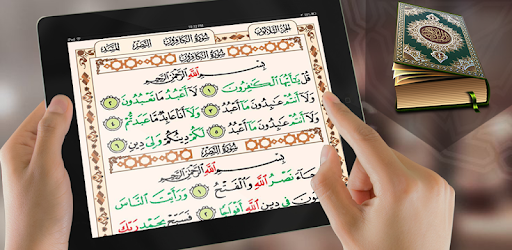 iPad
الجزء الثلاثون سورة الكافرون النصر المسد
سُورَةُ الكَافِرُونَ
بِسْمِ اللَّهِ الرَّحْمَٰنِ الرَّحِيمِ
قُلْ يَٰٓأَيُّهَا ٱلْكَٰفِرُونَ ١ لَآ أَعْبُدُ مَا تَعْبُدُونَ ٢
وَلَآ أَنتُمْ عَٰبِدُونَ مَآ أَعْبُدُ ٣ وَلَآ أَنَا۠ عَابِدٌ مَّا عَبَدتُّمْ ٤
وَلَآ أَنتُمْ عَٰبِدُونَ مَآ أَعْبُدُ ٥ لَكُمْ دِينُكُمْ وَلِىَ دِينِ ٦
سُورَةُ النَّصْرِ
بِسْمِ اللَّهِ الرَّحْمَٰنِ الرَّحِيمِ
جَآءَ نَصْرُ ٱللَّهِ وَٱلْفَتْحُ ١ وَرَأَيْتَ ٱلنَّاسَ
فِى دِينِ ٱللَّهِ أَفْوَاجًا ٢ فَسَبِّحْ بِحَمْدِ رَبِّكَ